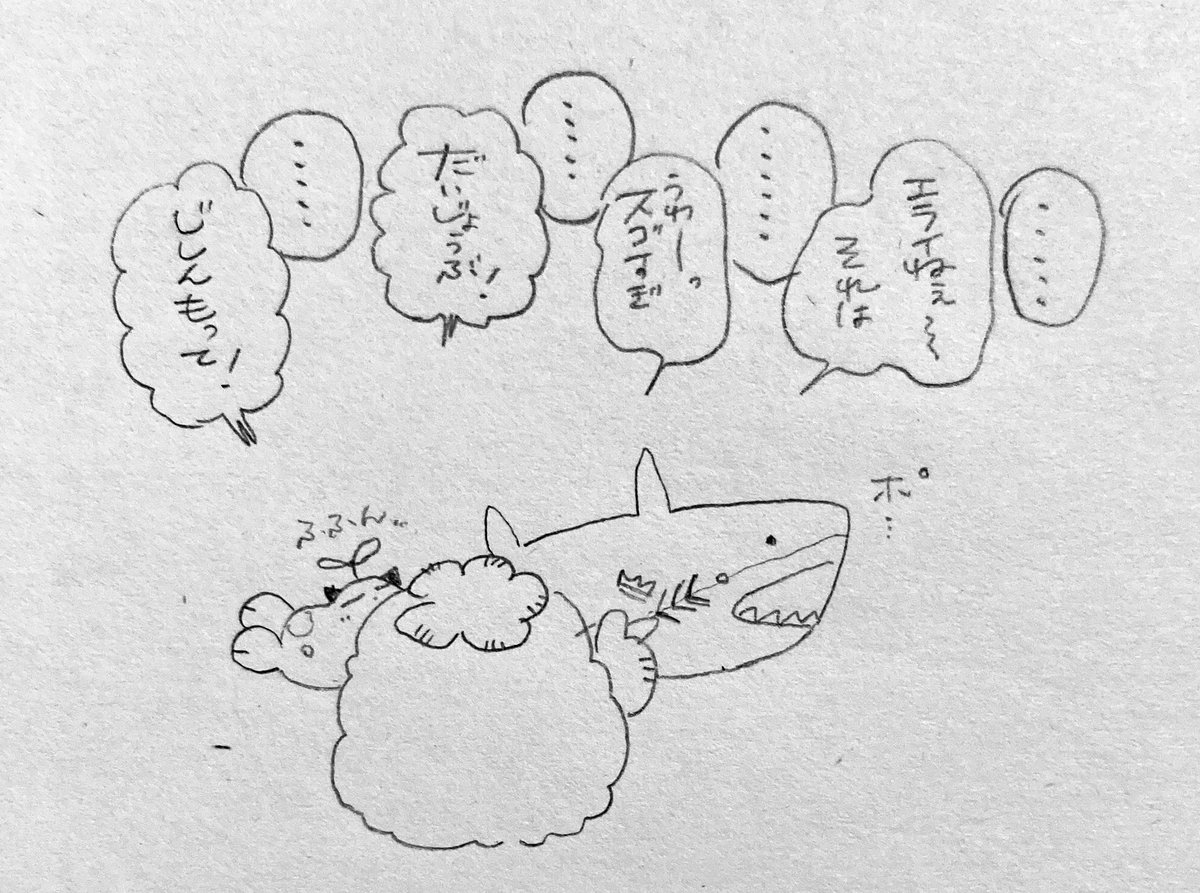 ・・・・・
エラすねぇ〜〜
それは
・・・・・・
うわーっ
スゴすぎ
・・・・・
だいじょうぶ!
・・・・・
じしんもって!
ポ…
ふふーん…